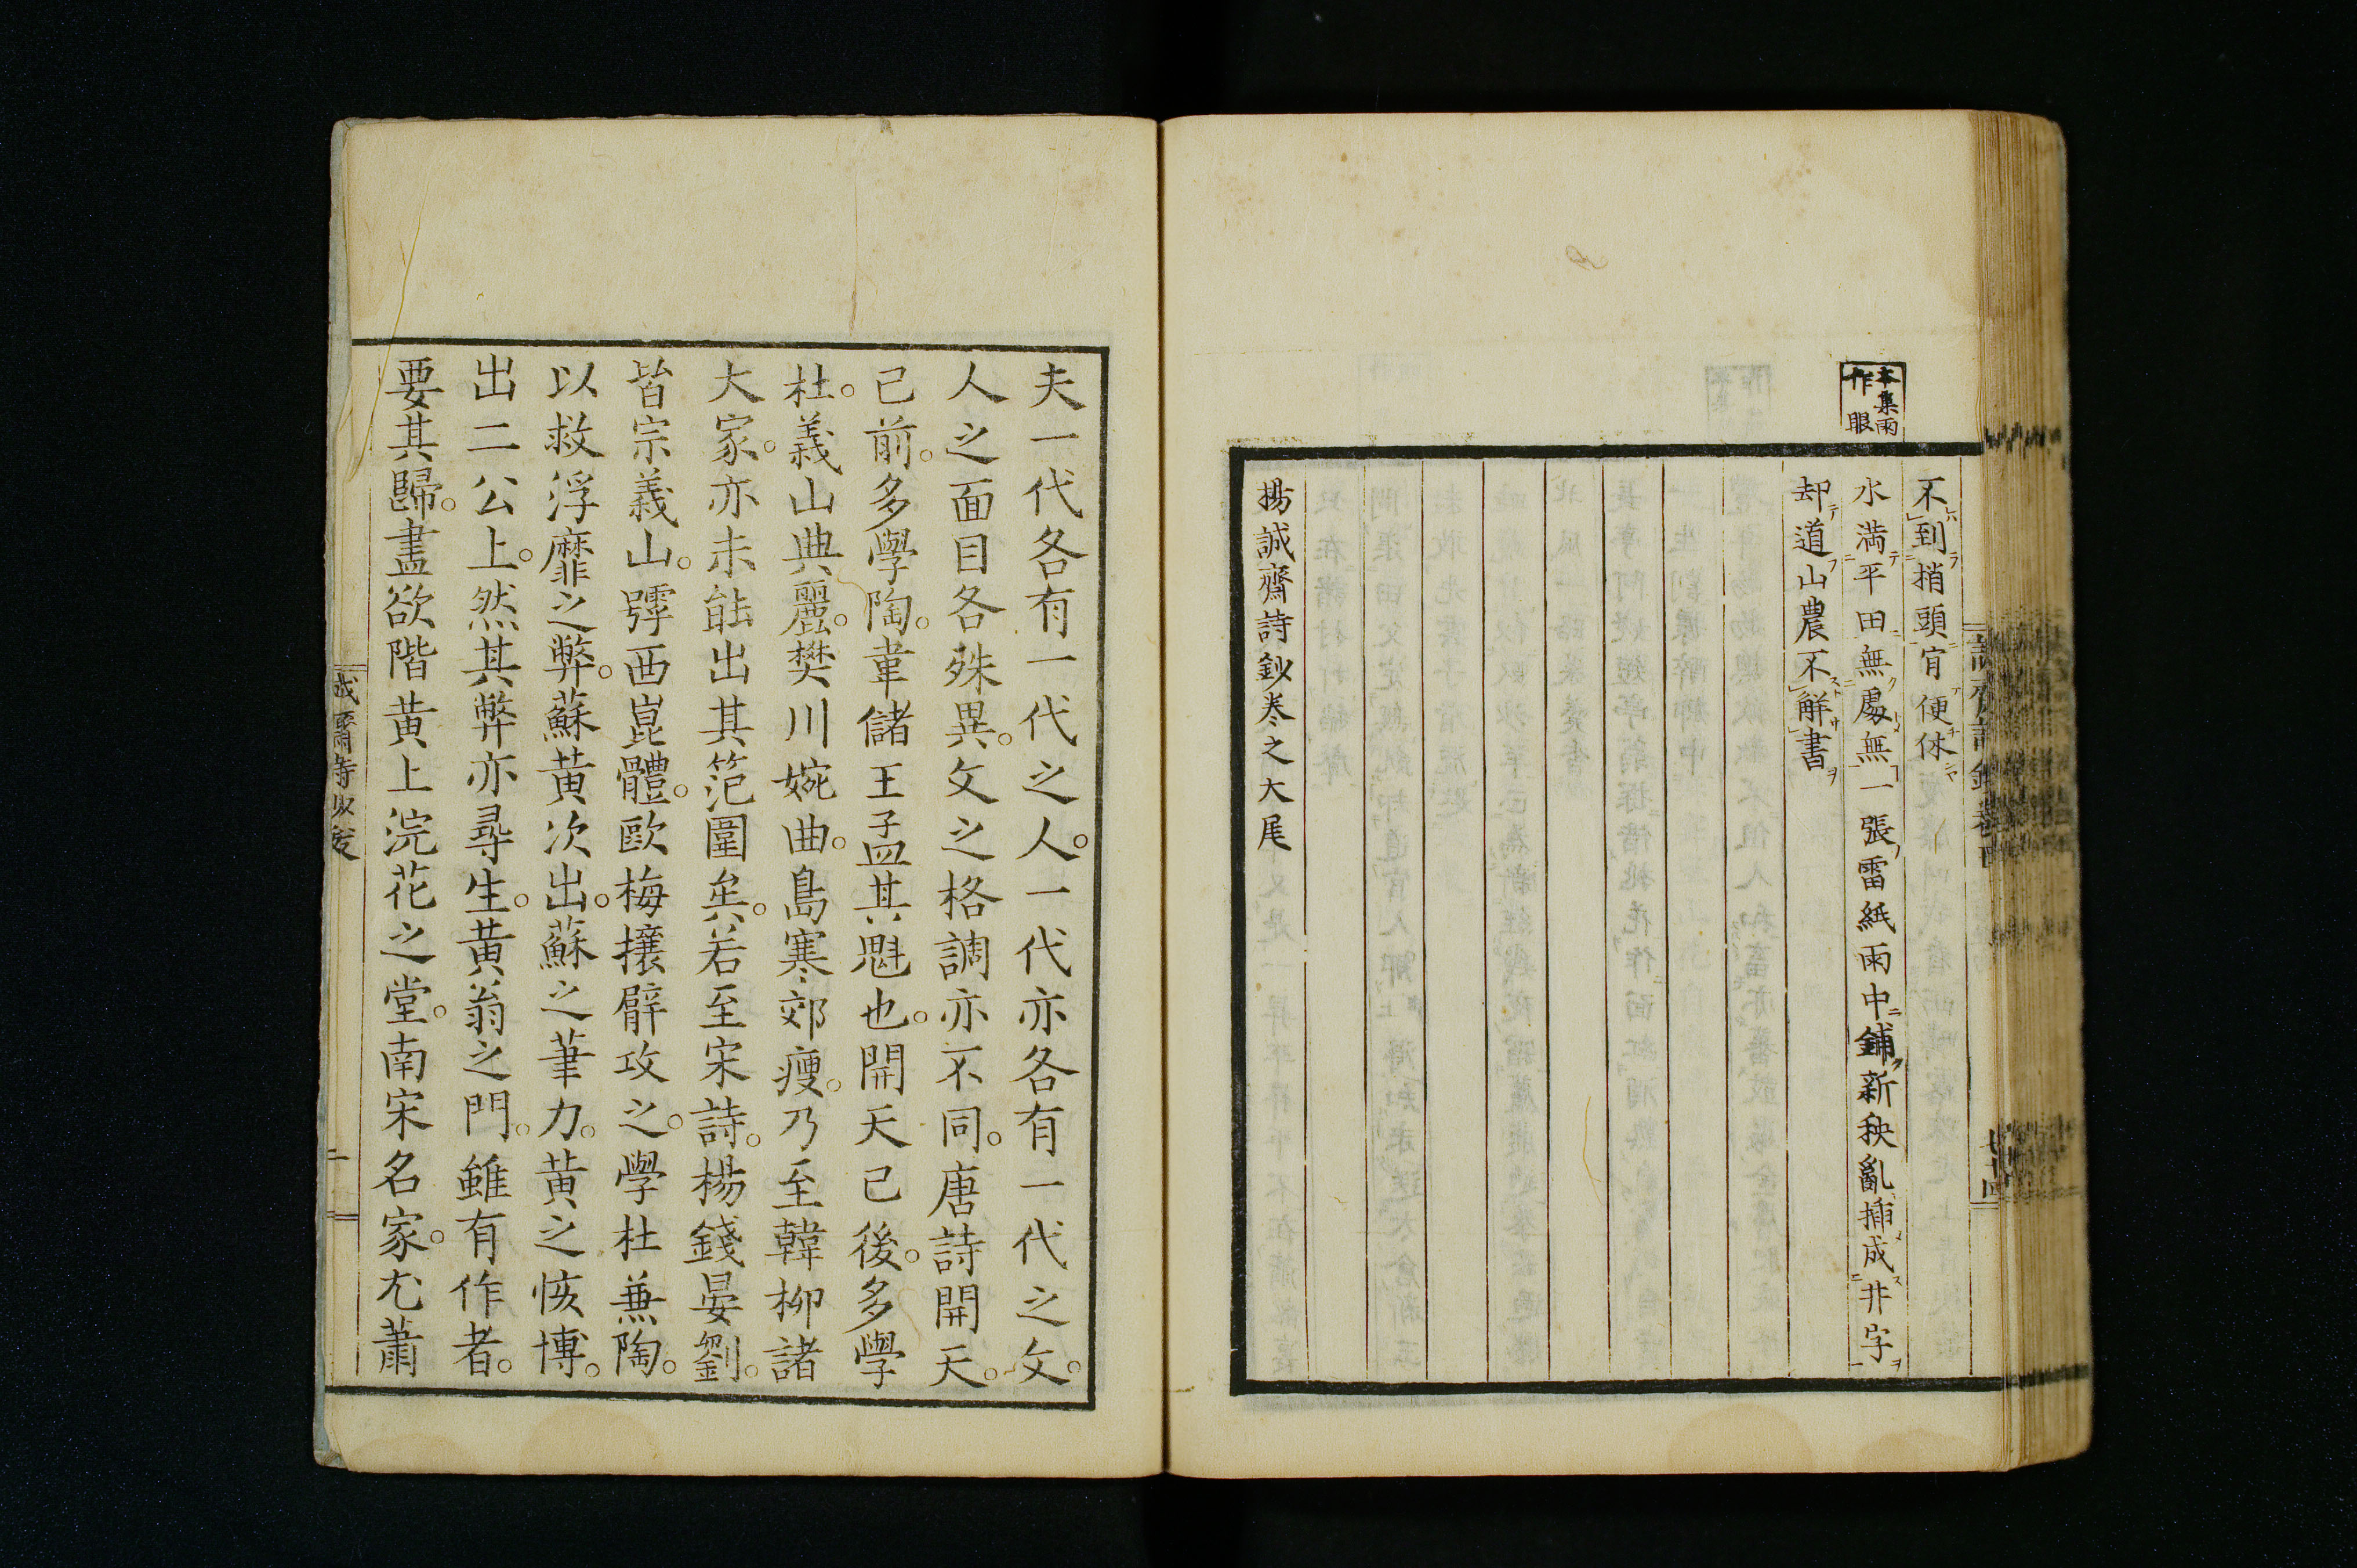 本集雨
作眼
不到梢頭肯便休
水満平田無處無一張雷紙雨中鋪新秧亂挿成非字
却道山農不解書
楊誠齋詩鈔卷之大尾
夫一代各有一代之人。一代亦各有一代之文。
人之面目各殊異。文之格調亦不同。唐詩開天。
已前。多學陶。韋儲王孟其魁也。開天已後。多學
杜。義山典麗。樊川婉曲。島寒郊瘦。乃至韓柳諸
大家。亦未能出其范圍矣。若至宋詩。楊錢晏劉。
皆宗義山。號西崑體。歐梅攘臂攻之。學杜兼陶。
以救浮靡之弊。蘇黄次出。蘇之筆力。黄之恢博。
出二公上。然其弊亦尋生。黄翁之門。雖有作者。
要其歸。盡欲階黄上浣花之堂。南宋名家。尤蕭